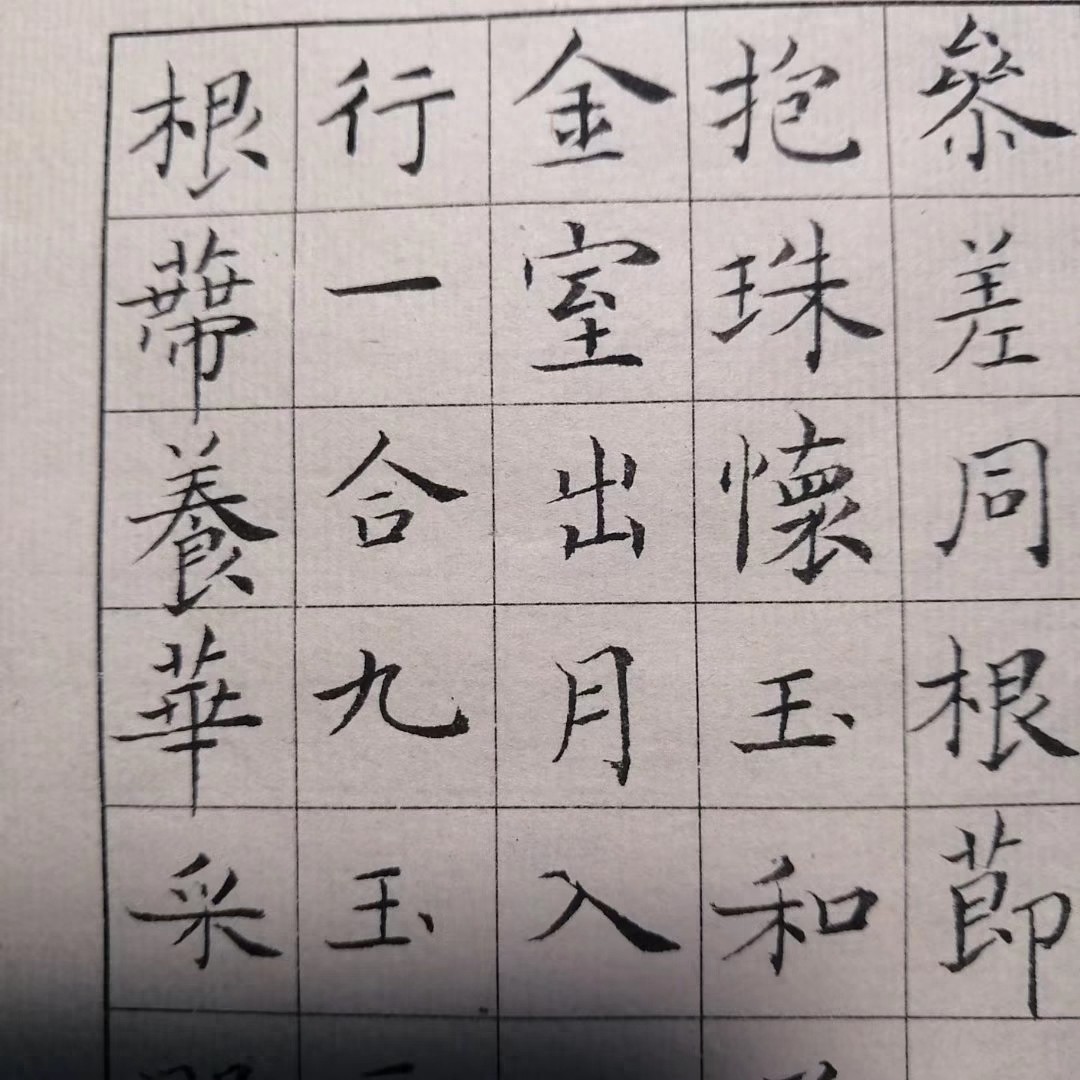 參差同根莭
抱珠懷玉和
金室出月入
行一合九玉
根蔕養華采